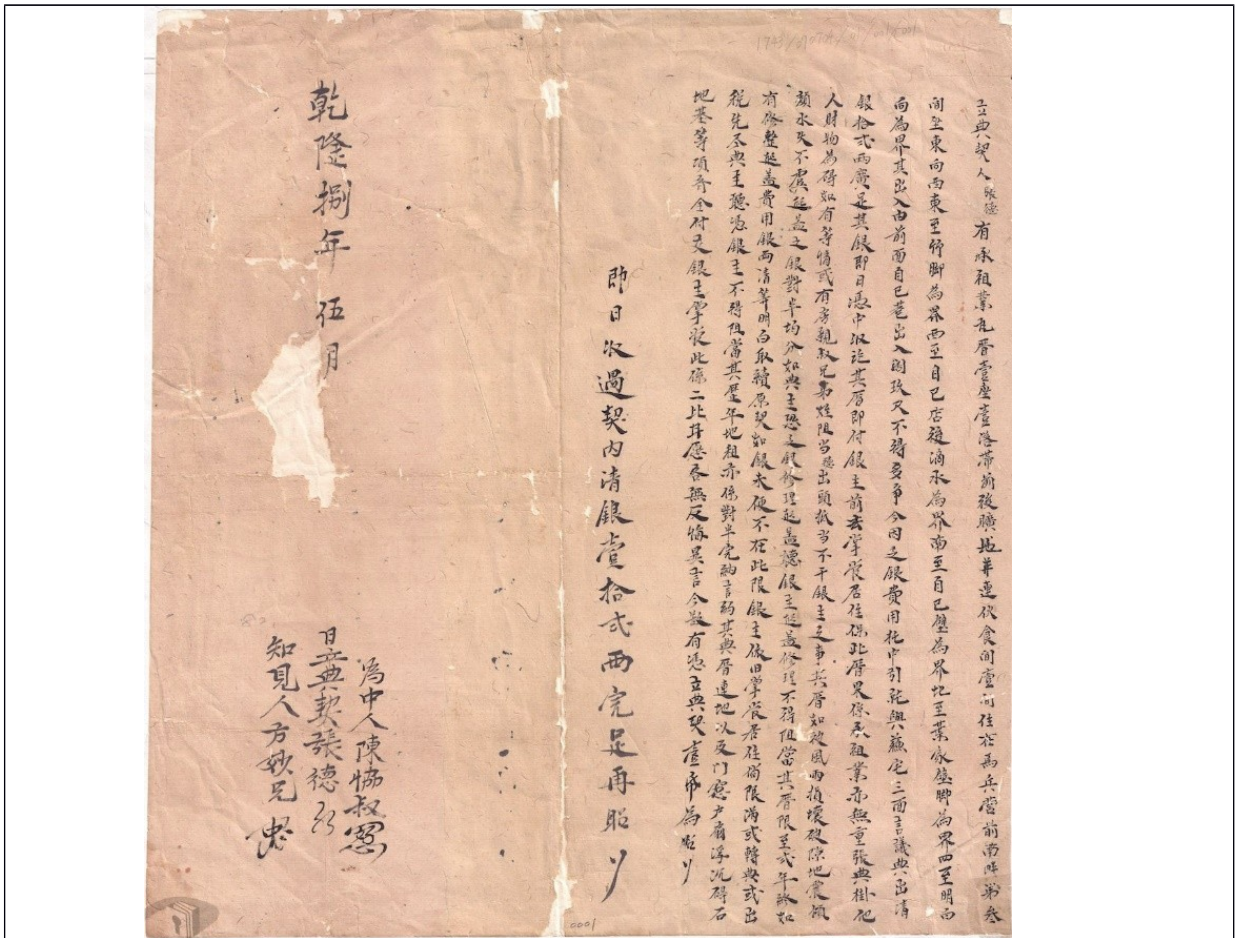 立典契人張德有承祖業瓦厝壹座壹落帶前後曠地并連伙食間壹間住在馬兵營前南畔第叁
間坐東向西東至竹脚為界西至自己店後滴水為界南至自己壁為界北至業家壁脚為界四至明白
向為界其出入由前面自己巷出入闊玖尺不得多爭今因乏銀費用托中引就與蘇宅三面言議典出清
銀拾弍兩廣足其銀即日憑中收訖其厝即付銀主前去掌管居住保此厝果係承祖業亦無重張典掛他
人財物為碍如有等情或有房親叔兄弟姪阻当德出頭抵当不干銀主之事其厝如被風雨損壞破陳地震傾
頹水災不虞起蓋之銀對半均分如典主恐乏銀修理起蓋聽銀主起蓋修理不得阻當其厝限至弍年終如
有修整起蓋費用銀兩清算明白取贖原契如銀未便不在此限銀主依旧掌管居住倘限滿或轉典或出
稅先尽典主聽憑銀主不得阻當其歷年地租亦係對半完納言約其典厝連地以及门窓户扇浮沉碍石
地基等項齊全付交銀主掌管此係二比甘愿各無反悔異言今欲有憑立典契壹帋為炤
即日收過契內清銀壹拾弍兩完足再炤
為中人陳恊叔
乾隆捌年 伍月 日立典契張德
知見人方妙兄
1743
0001